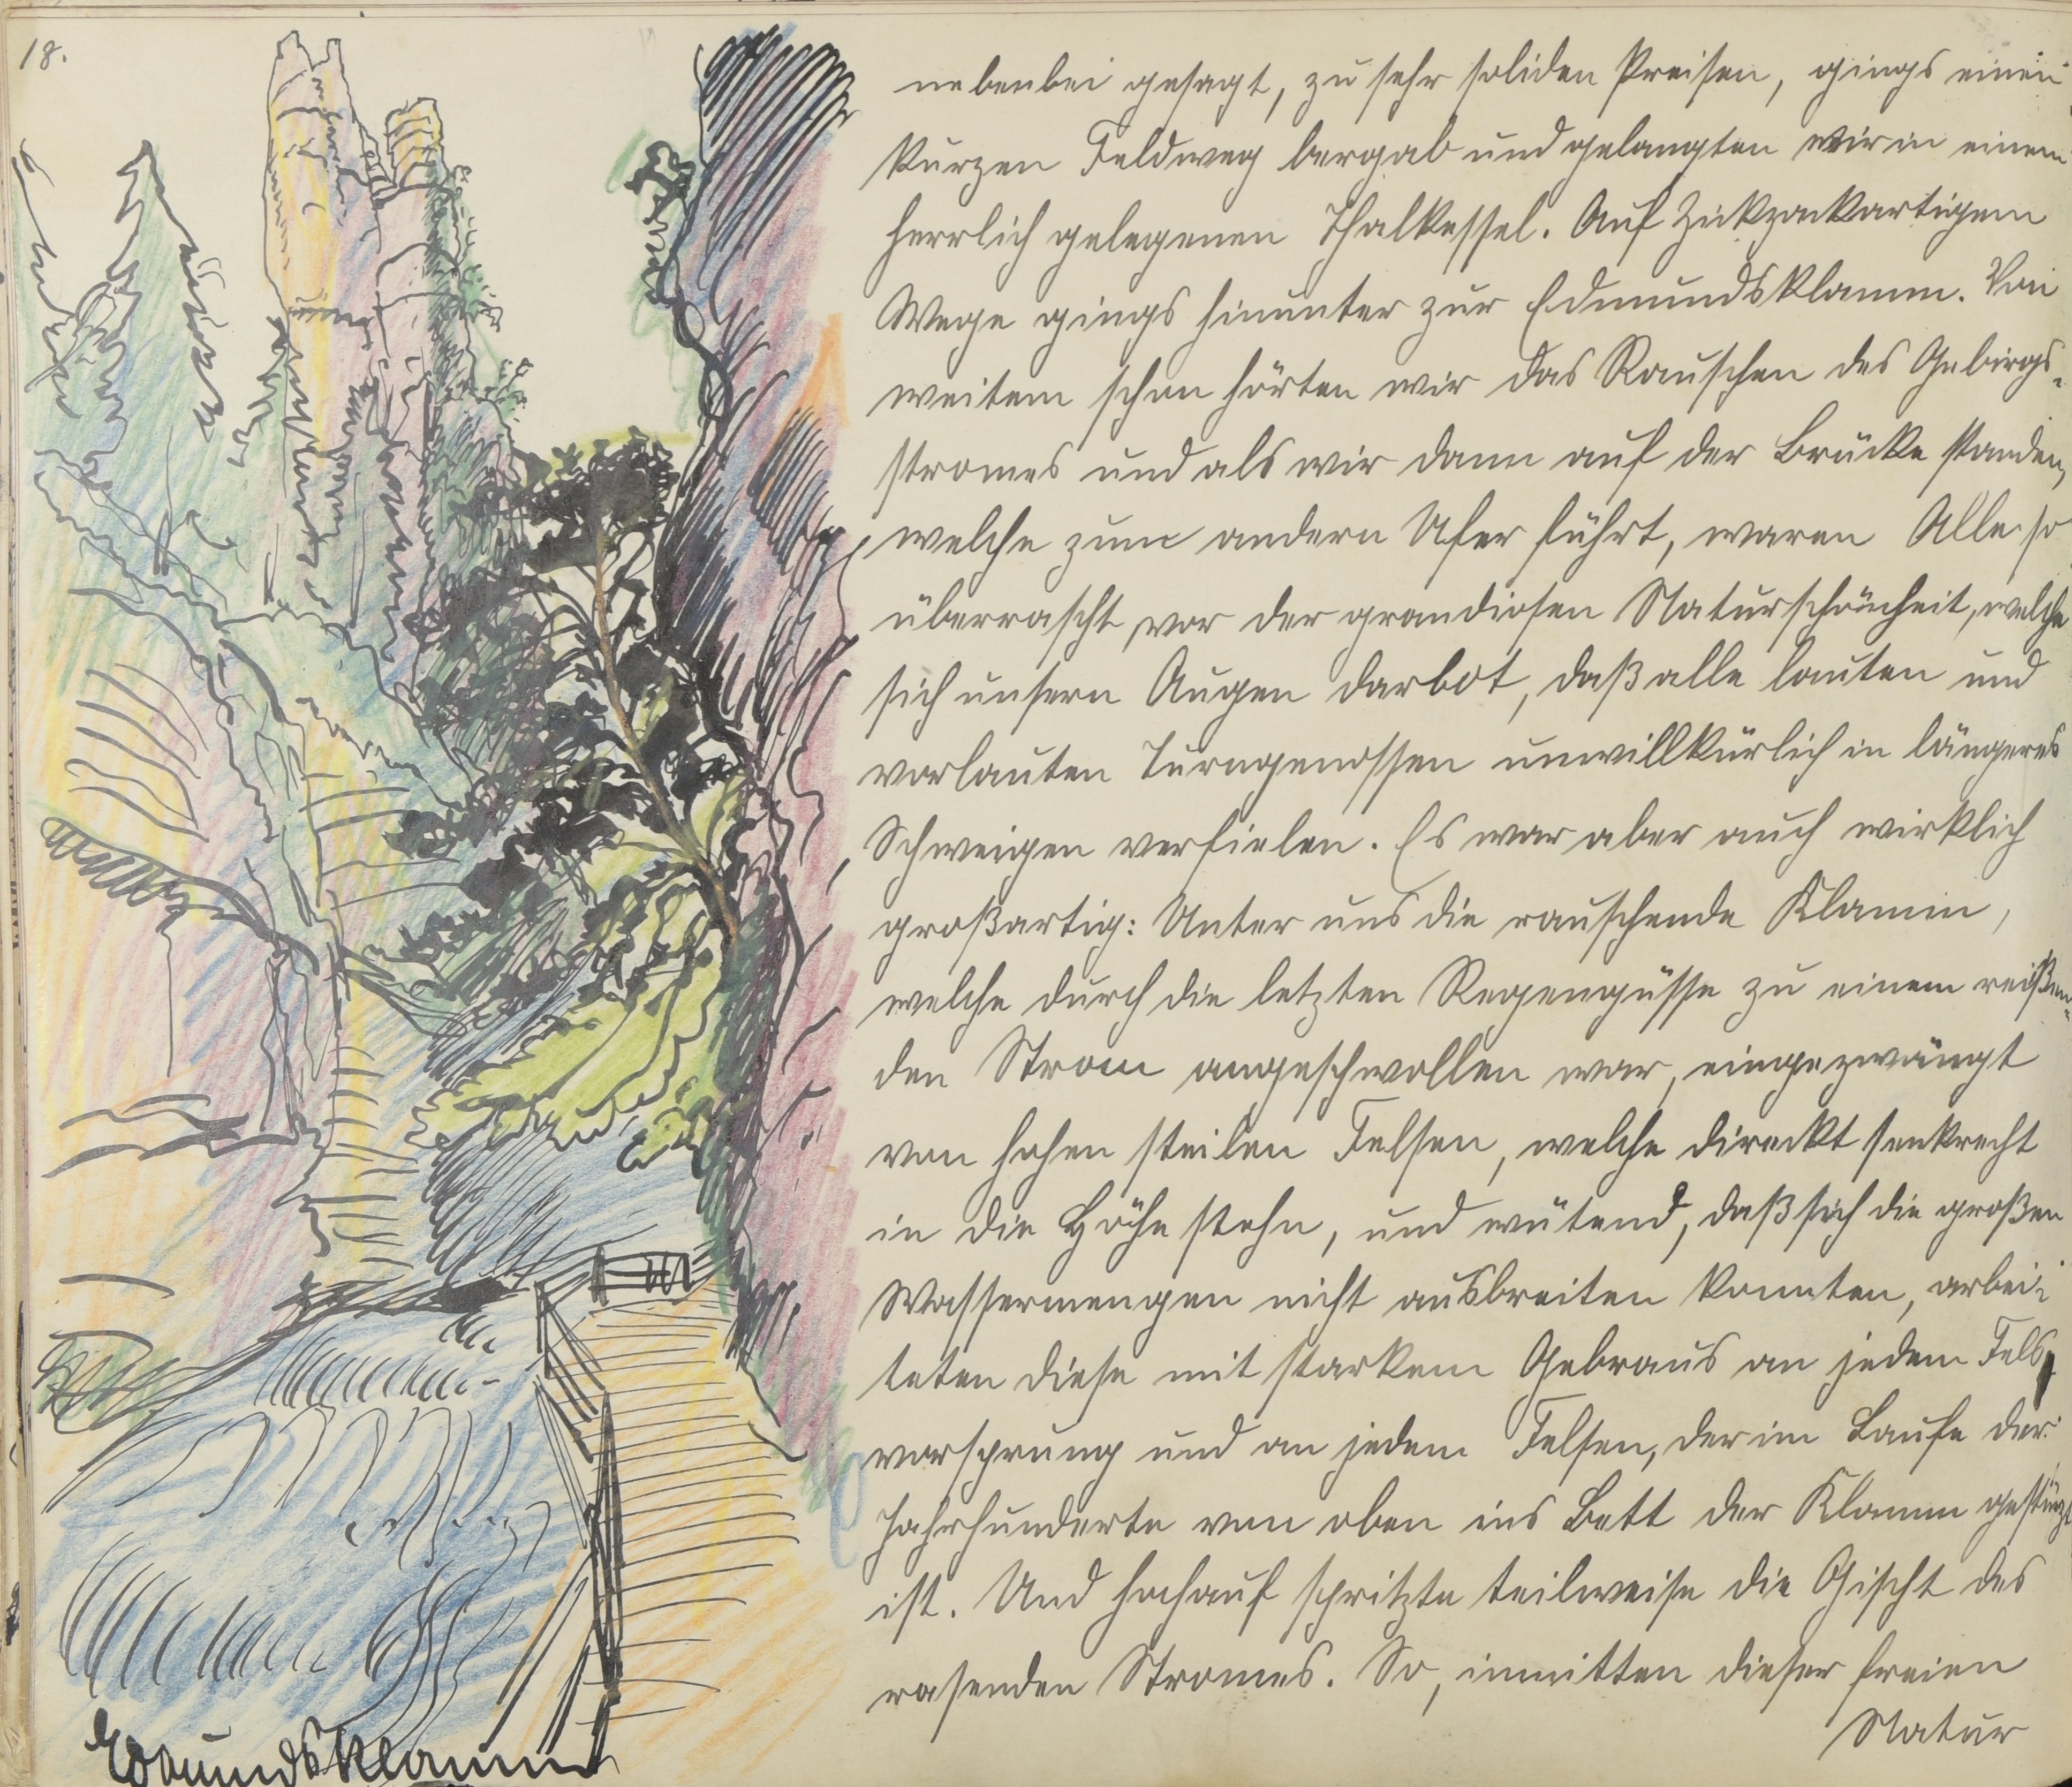 18.
nebenbei gesagt, zu sehr soliden Preisen, gings einen
kurzen Feldweg bergab und gelangten wir in einem
herrlich gelegenen Thalkessel. Auf zickzackartigem
Wege gings hinunter zur Edmundsklamm. Von
weitem schon hörten wir das Rauschen des Gebirgs-
stromes und als wir dann auf der Brücke standen,
welche zum andern Ufer führt, waren Alle so
überrascht vor der grandiosen Naturschönheit, welche
sich unsern Augen darbot, daß alle lauten und
vorlauten Turngenossen unwillkürlich in längeres
Schweigen verfielen. Es war aber auch wirklich
großartig: Unter uns die rauschende Klamm,
welche durch die letzten Regengüsse zu einem reißen-
den Strom angeschwollen war, eingezwängt
von hohen steilen Felsen, welche direckt senkrecht
in die Höhe stehn, und wütend, daß sich die großen
Wassermengen nicht ausbreiten konnten, arbei-
teten diese mit starkem Gebraus an jedem Fels-
vorsprung und an jedem Felsen, der im Laufe der
Jahrhunderte von oben ins Bett der Klamm gestürzt
ist. Und hochauf spritzte teilweise die Gischt des
rasenden Stromes. So, inmitten dieser freien
Natur
Edmundsklamm